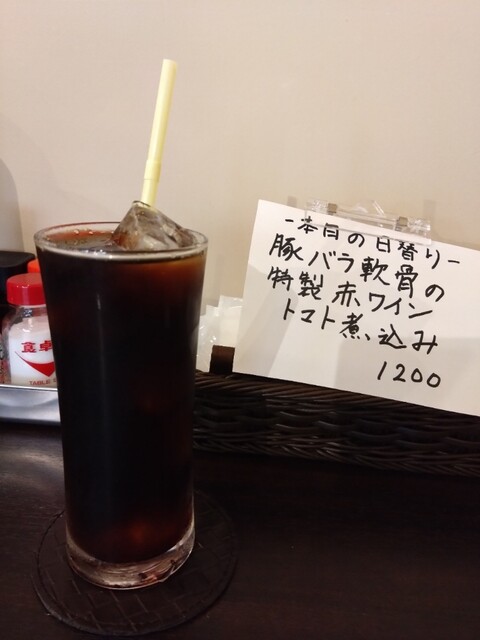 -本日の日替り-
豚バラ軟骨の
特製赤ワイン
トマト煮込み
1200
食卓
TABLE